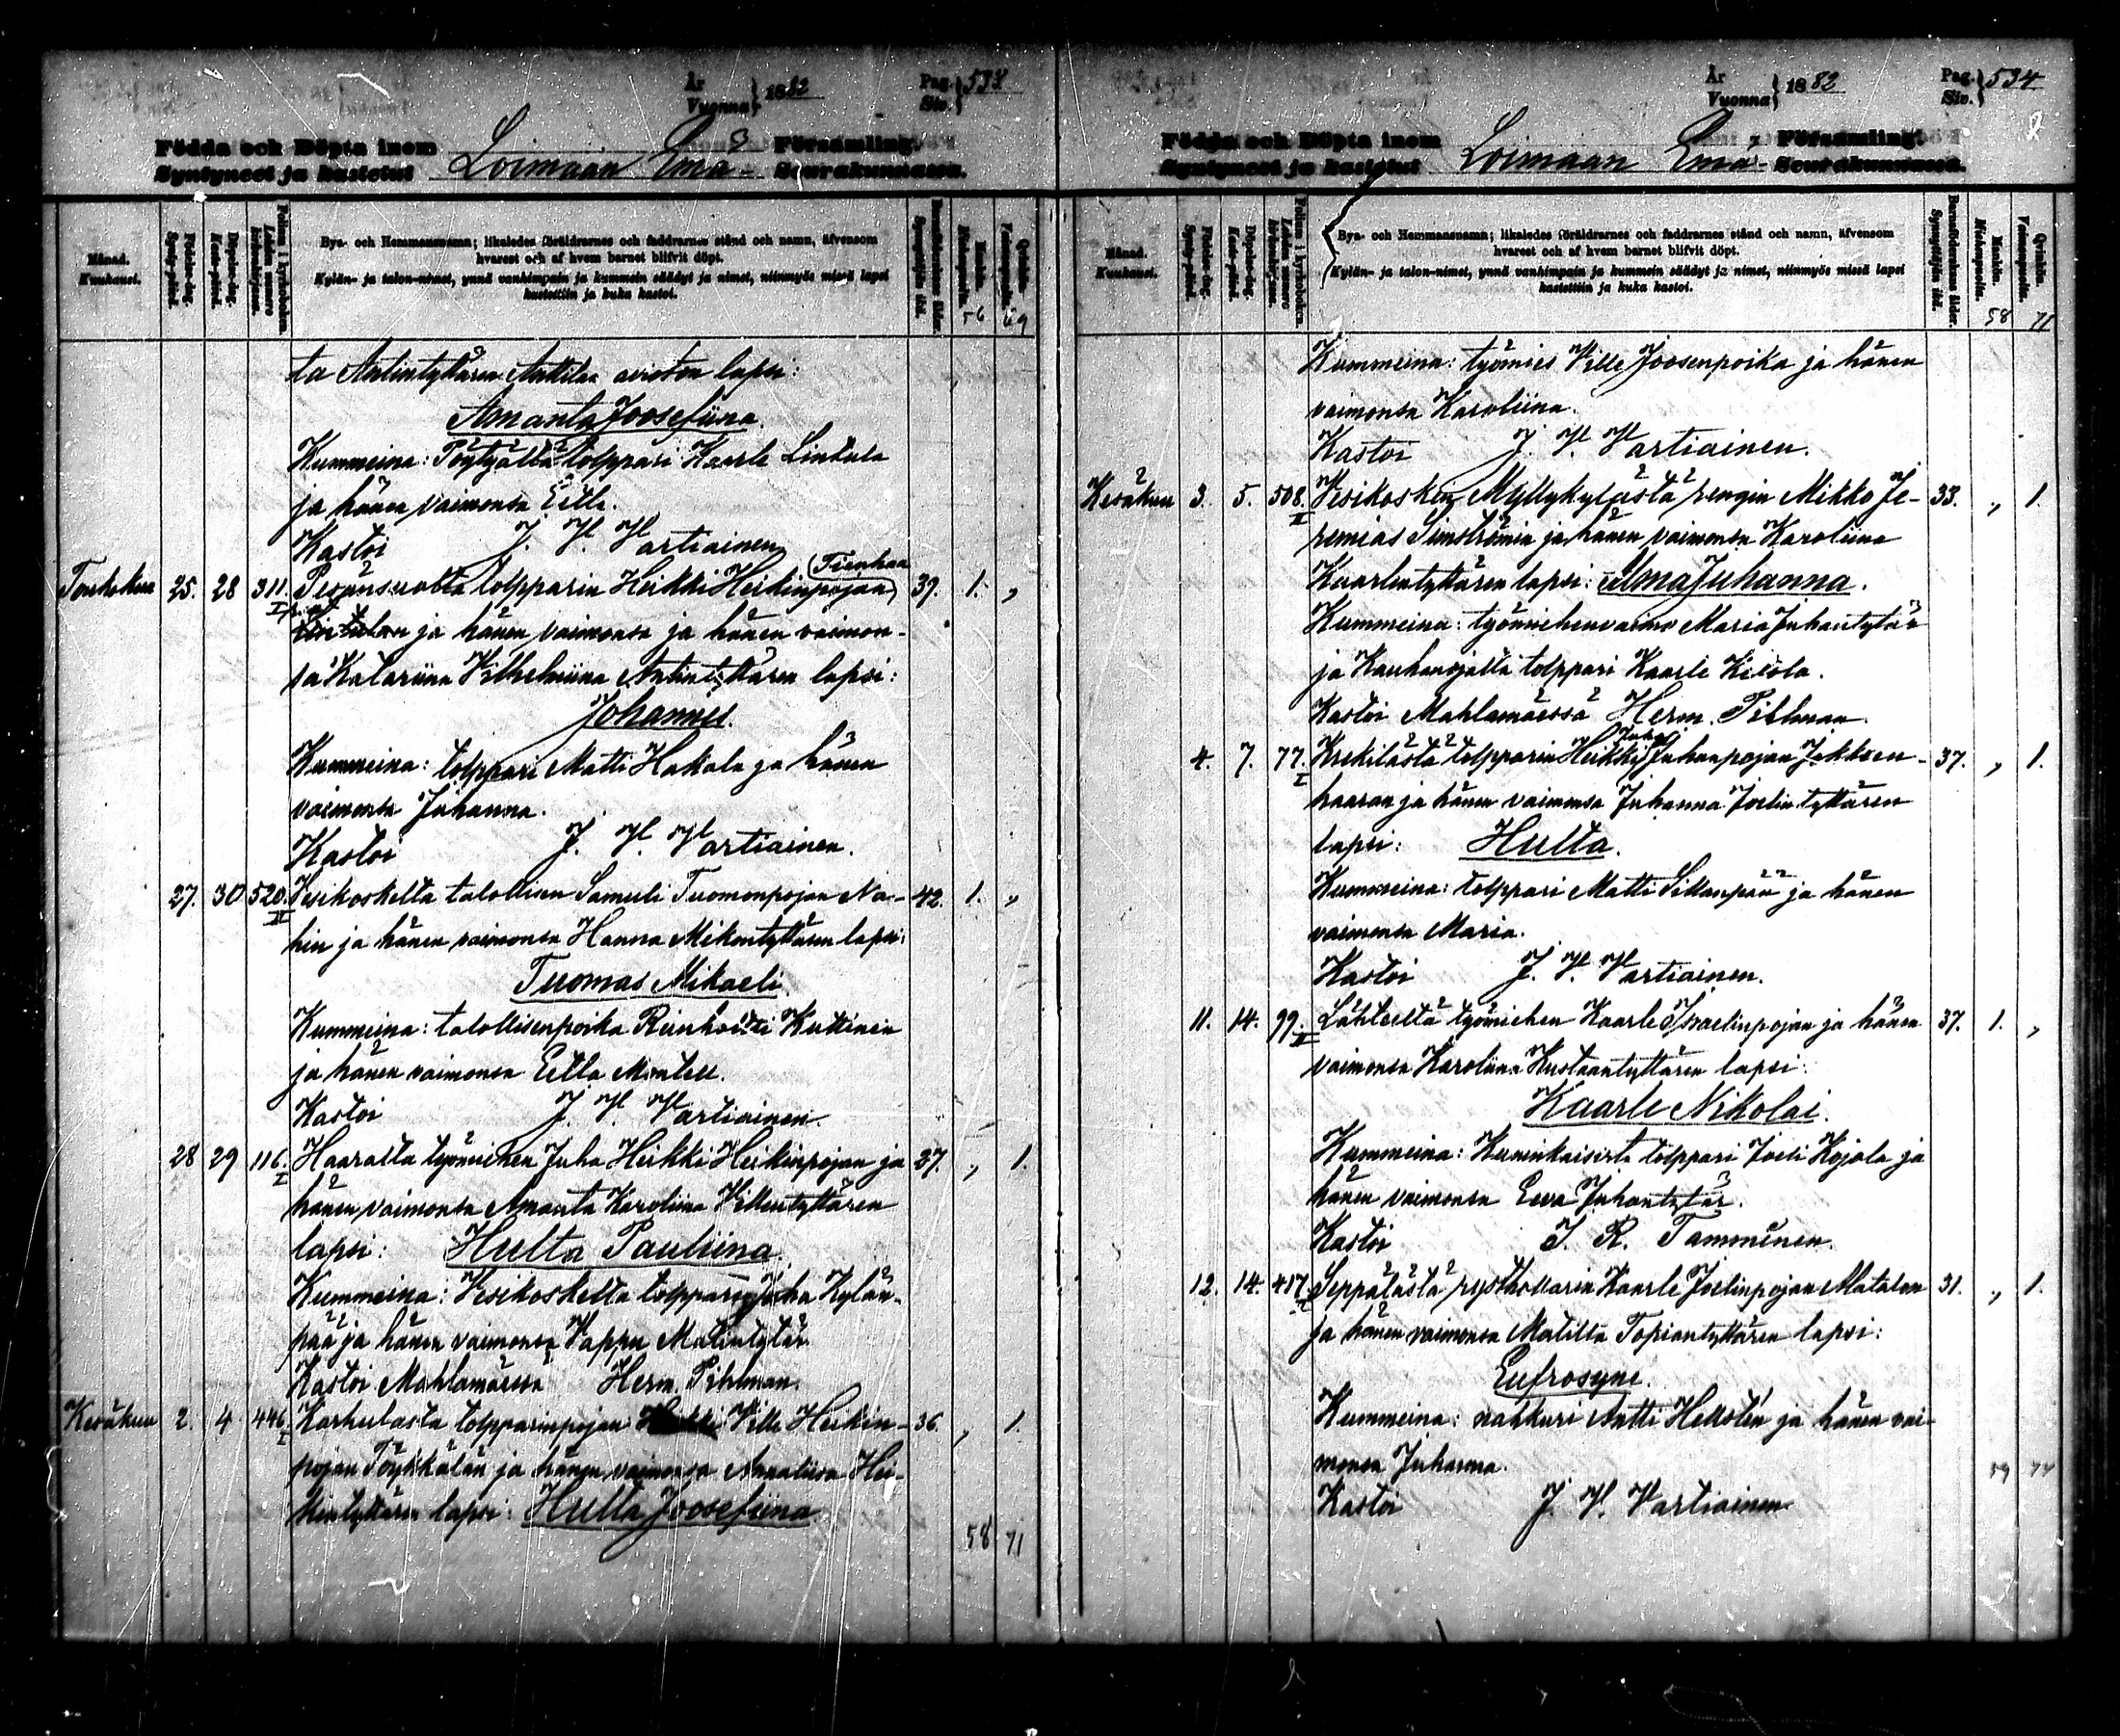 År
Vuonna } 1882
Pag.
Siv. } 533
Födda och Döpta inom
Syntyneet ja kastetut
Loimaan Emä-
Församling.
Seurakunnassa.
Månad.
Kuukausi.
Födelse-dag.
Synty-päivä.
Döpelse-dag.
Kaste-päivä.
Folium i kyrkoboken.
Lehden numero kirkonkirjassa.
Bya- och Hemmansnamn; likaledes föräldrarnes och faddrarnes stånd och namn, äfvensom
hvarest och af hvem barnet blifvit döpt.
Kylän- ja talon-nimet, ynnä vanhimpain ja kummein säädyt ja nimet, niinmyös missä lapsi
kastettiin ja kuka kastoi.
Barnaföderskans ålder.
Synnyttäjän ikä.
Mankön.
Miehenpuolta.
56
Qvinkön.
Vaimonpuolta.
69
ta Antintyttären Anttilan avioton lapsi:
Amanta Joosefiina.
Kummeina: Pöytyältä tolppari Kaarle Lintula
ja hänen vaimonsa Eetla.
Kastoi J. V. Vartiainen
Toukokuu 25. 28 311. I Peränsuolta tolpparin Heikki Heikinpojan (Tienhaa 39. 1. „
ja hänen vaimonsa ja hänen vaimon-
sa Katariina Vilhelmiina Antintyttären lapsi:
Johannes.
Kummeina: tolppari Matti Hakala ja hänen
vaimonsa Juhanna.
Kastoi J. V. Vartiainen.
27. 30 520. II Vesikoskelta talollisen Samuli Tuomonpojan Na- 42. 1. „
hin ja hänen vaimonsa Hanna Mikontyttären lapsi:
Tuomas Mikaeli.
Kummeina: talollisenpoika Reinhoitti Kuttinen
ja hänen vaimonsa Eetla
Kastoi J. V. Vartiainen.
28 29 116. I Haaralta työmiehen Juha Heikki Heikinpojan ja 37. „ 1.
hänen vaimonsa Amanta Karoliina Villentyttären
lapsi: Hulta Pauliina.
Kummeina: Vesikoskelta tolppari Juha Kylän-
pää ja hänen vaimonsa Vappu Matintytär
Kastoi Mahlamäessä Herm. Pihlman.
Kesäkuu 2. 4 446. I Karhulasta tolpparinpojan Ville Heikin- 36. „ 1.
pojan Töykkälän ja hänen vaimonsa Annaliisa Hei-
kintyttären lapsi: Hulta Joosefiina.
58 71
År
Vuonna } 1882
Pag.
Siv. } 534
Födda och Döpta inom
Syntyneet ja kastetut
Loimaan Emä-
Församling.
Seurakunnassa.
Månad.
Kuukausi.
Födelse-dag.
Synty-päivä.
Döpelse-dag.
Kaste-päivä.
Folium i kyrkoboken.
Lehden numero kirkonkirjassa.
Bya- och Hemmansnamn; likaledes föräldrarnes och faddrarnes stånd och namn, äfvensom
hvarest och af hvem barnet blifvit döpt.
Kylän- ja talon-nimet, ynnä vanhimpain ja kummein säädyt ja nimet, niinmyös missä lapsi
kastettiin ja kuka kastoi.
Barnaföderskans ålder.
Synnyttäjän ikä.
Mankön.
Miehenpuolta.
58
Qvinkön.
Vaimonpuolta.
71
Kummeina: työmies Ville Joosenpoika ja hänen
vaimonsa Karoliina.
Kastoi J. V. Vartiainen.
Kesäkuu 3. 5. 508. II Vesikosken Myllykylästä rengin Mikko Je- 33. „ 1.
remias Simströmin ja hänen vaimonsa Karoliina
Kaarlentyttären lapsi: Alma Juhanna.
Kummeina: työmiehenvaimo Maria Juhantytär
ja Kauhanojalta tolppari Kaarle Kitola.
Kastoi Mahlamäessä Herm. Pihlman.
4. 7. 77. I Krekilästä tolpparin Heikki Juhanpojan Jokisen- 37. „ 1.
haaran ja hänen vaimonsa Juhanna Joelintyttären
lapsi: Hulta.
Kummeina: tolppari Matti Sillanpää ja hänen
vaimonsa Maria.
Kastoi J. V. Vartiainen.
11. 14. 99. II Lähteeltä työmiehen Kaarle Israelinpojan ja hänen 37. 1. „
vaimonsa Karoliina Kustaantyttären lapsi:
Kaarle Nikolai.
Kummeina: Kuninkaisista tolppari Joeli Kojola ja
hänen vaimonsa Eeva Juhantytär.
Kastoi J. R. Tamminen.
12. 14. 417. Seppälästä rysthollarin Kaarle Joelinpojan Matalan 31. „ 1.
ja hänen vaimonsa Matilta Topiantyttären lapsi:
Eufrosyne.
Kummeina: nahkuri Antti Hellstén ja hänen vai-
monsa Juhanna.
59 74
Kastoi J. V. Vartiainen